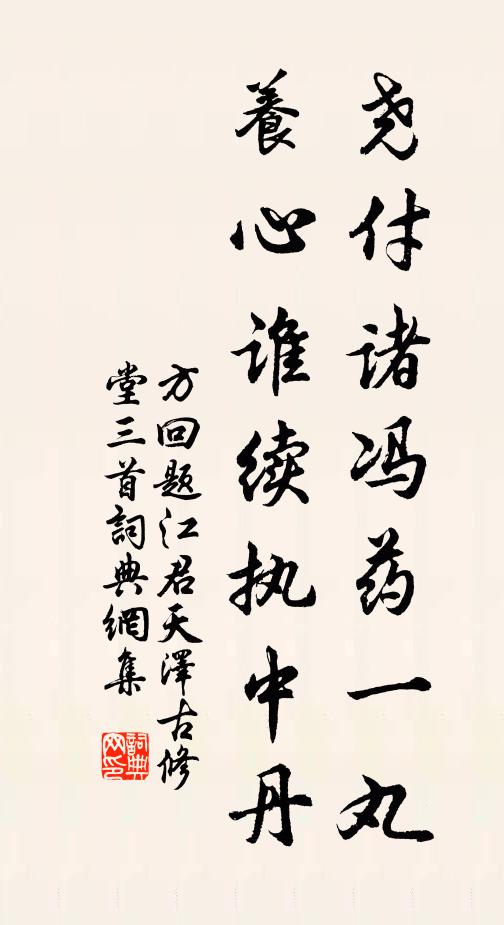 尧付诸冯药一丸
養心谁续执中丹
方回题江君天澤古修
堂三首詞典網集
詞典
网印